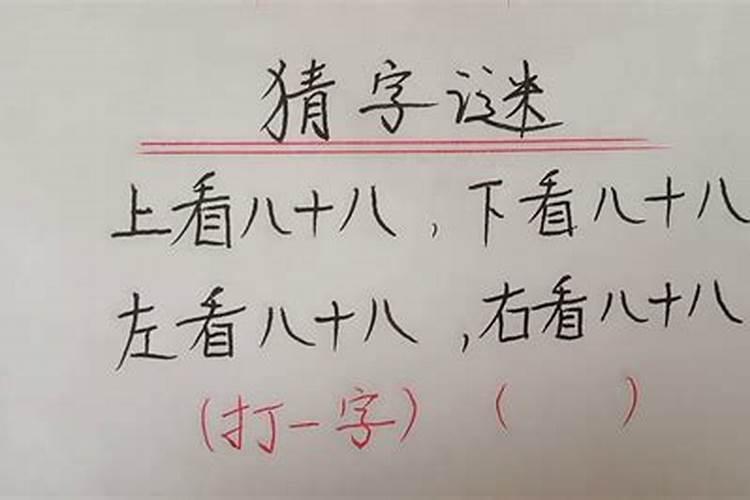 猜字谜
上看八十八，下看八十八
左看八十八，右看八十八
（打一字）（ ）